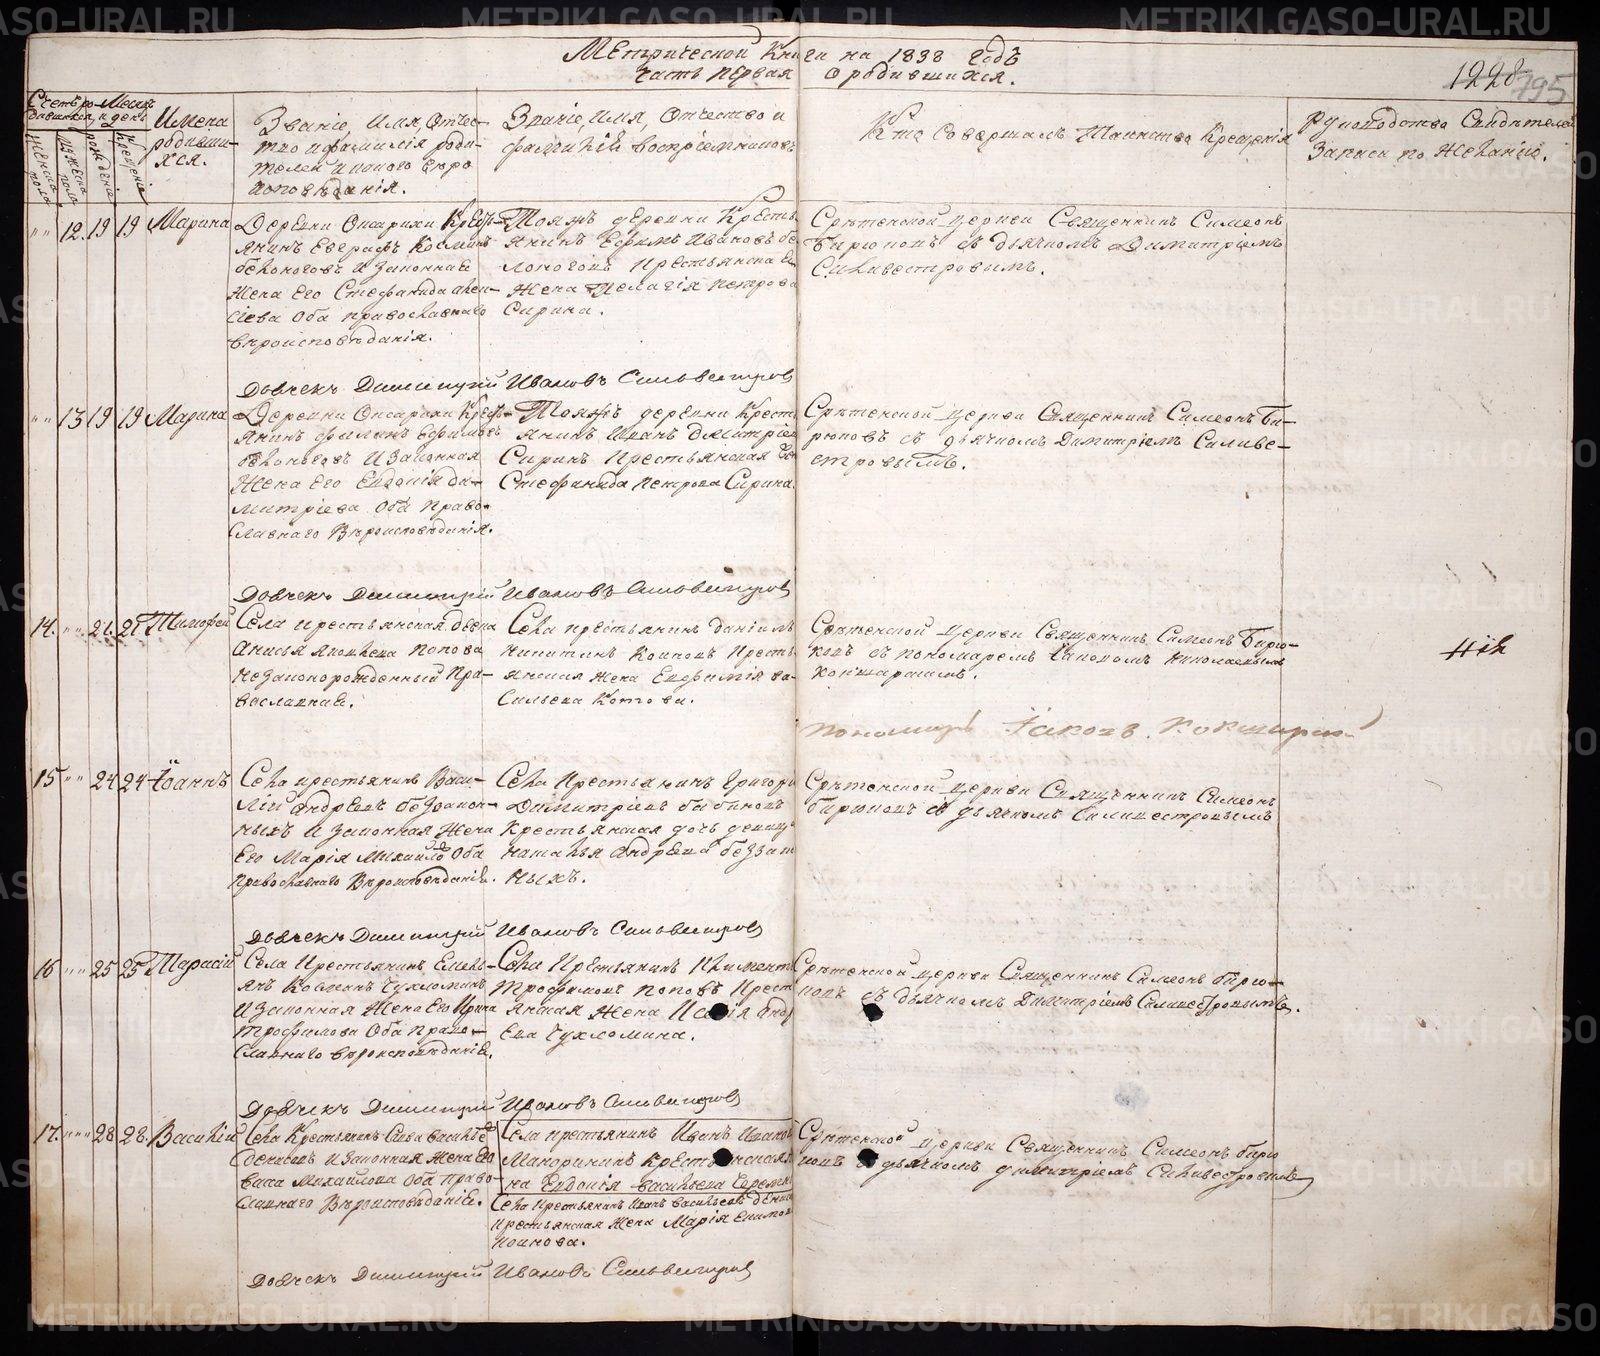 Метрической Книги на 1838 Годъ
часть первая о родившихся.
1228
795
Счетъ ро-
дившихся,
Месяцъ
и день
Женска
пола
Мужеска
пола
рожденія
Крещенія
Имена
родивши-
хся.
Званіе, Имя, Отчес-
тво и фамилія роди-
телей и какого веро
исповѣданія.
Званіе, Имя, Отчество и
фамилій воспріемниковъ
Кто Совершалъ Таинство Крещенія
Рукоподство Свидѣтелей
Записи по Желанію.
12. 19 19 Марина
Деревни Опарихи Кресть-
янинъ Евграфъ Косминъ
белоноговъ и Законная
Жена Его Стефанида алек-
сіева Оба православнаго
вѣроисповѣданія.
Тояжъ деревни Кресть
янинъ Ефимъ Ивановъ бе
лоноговъ крестьянска
Жена Пелагія петрова
Сирина.
Срѣтенской церкви Священникъ Симеонъ
бирюковъ съ дьячкомъ Димитріемъ
Силивестровымъ.
Дьячекъ Димитрий Ивановъ Сильвестровъ
13 19 19 Марина
Деревни Опарихи Кресть-
янинъ филипъ Ефимовъ
белоноговъ и Законная
Жена Его Евдокія ди-
митріева Оба Право-
славнаго Вѣроисповѣданія.
Тояжъ деревни Крестья
янинъ Иванъ дмитріев
Сиринъ крестьянская
Стефанида петрова Сирина.
Срѣтенской церкви Священникъ Симеонъ Би-
рюковъ съ дьячкомъ Димитріемъ Силиве-
стровымъ.
Дьячекъ Димитрий Ивановъ Сильвестровъ
14. 21. 21 Тимофей
Села крестьянская девка
Анисья Яковлева попова
незаконорожденный Пра-
вославная.
Села крестьянинъ даніилъ
никитинъ Котовъ кресть
янская жена Евфимія ва-
сильева Котова.
Срѣтенской церкви Священникъ Симеонъ Бирю-
ковъ съ пономаремъ Іаковомъ Николаевымъ
Кокшарскимъ.
Пономарь Іаковъ Кокшарск
15 24 24 Іоаннъ
Села крестьянинъ Васи-
лій андреевъ беззакон-
ныхъ и Законная Жена
Его Марія Михайлова Оба
православнаго Вѣроисповѣданія.
Села Крестьянинъ Григори
Димитріевъ бабиновъ
Крестьянская дочь девиц
наталья андреева беззак
ныхъ.
Срѣтенской церкви Священникъ Симеонъ
бирюковъ съ дьячкомъ Силивестровымъ
Дьячекъ Димитрий Ивановъ Сильвестровъ
16 25 25 Тарасій
Села Крестьянинъ Емель-
янъ Козминъ Чухломинъ
и Законная Жена Его Ирина
трофимова Оба право-
славнаго вѣроисповѣданія.
Села Крестьянинъ Климентъ
трофимовъ поповъ Крест
янская жена андр
ева Чухломина.
Срѣтенской церкви Священникъ Симеонъ бирю-
ковъ съ дьячкомъ Димитріемъ Силивестровымъ.
Дьячекъ Димитрий Ивановъ Сильвестровъ
17. 28 28. Василій
Села Крестьянинъ Сава васильевъ
и Законная жена Его
Михайлова Оба право-
славнаго Вѣроисповѣданія.
Села крестьянинъ Иванъ Иванов
Макоринъ крестьянская
Евдокія васильева
Села Крестьянинъ Иванъ васильевъ
крестьянская жена Марія
Срѣтенской церкви Священникъ Симеонъ бирю
ковъ съ дьячкомъ димитріемъ Силивестровымъ
Дьячекъ Димитрий Ивановъ Сильвестровъ
METRIKI.GASO-URAL.RU